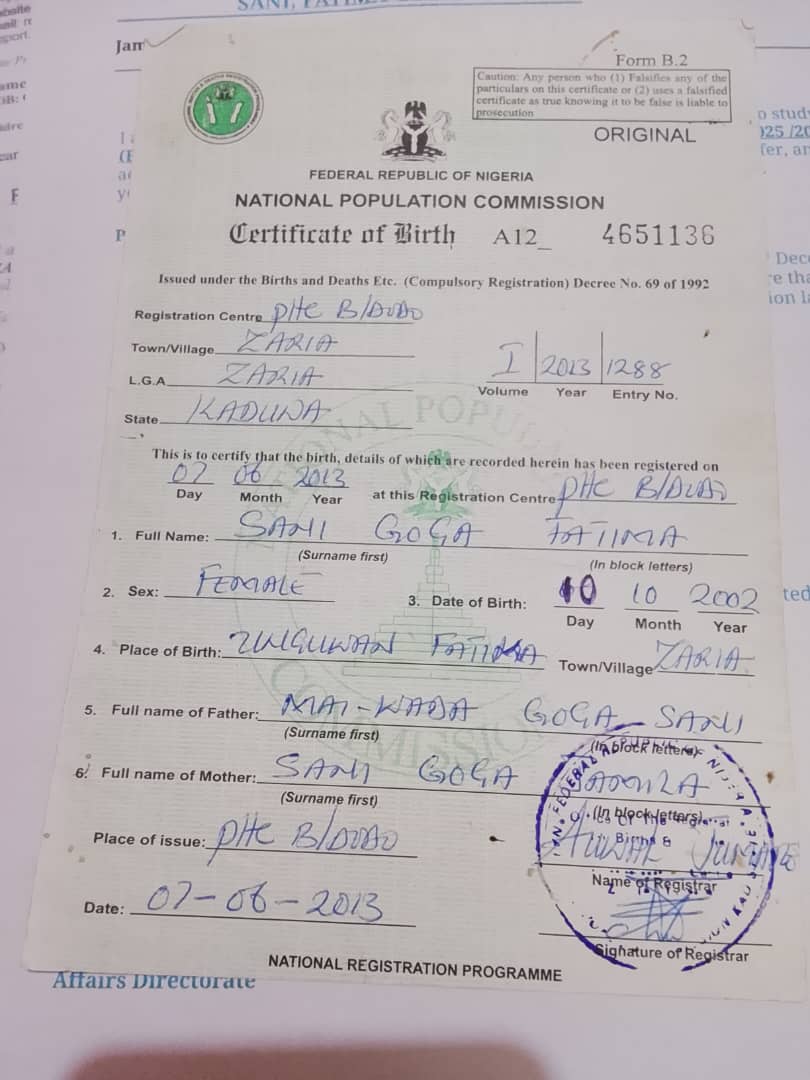 SANI, FATIM
Jam
Form B.2
Caution: Any person who (1) Falsifies any of the
particulars on this certificate or (2) uses a falsified
certificate as true knowing it to be false is liable to
prosecution
ORIGINAL
FEDERAL REPUBLIC OF NIGERIA
NATIONAL POPULATION COMMISSION
Certificate of Birth A12_ 4651136
Issued under the Births and Deaths Etc. (Compulsory Registration) Decree No. 69 of 1992
Registration Centre PHC B/DODO
Town/Village ZARIA
L.G.A. ZARIA
I 2013 1288
Volume Year Entry No.
State KADUNA
This is to certify that the birth, details of which are recorded herein has been registered on
07 06 2013
Day Month Year at this Registration Centre PHC B/DODO
1. Full Name: SANI GOGA FATIMA
(Surname first) (In block letters)
2. Sex: FEMALE 3. Date of Birth: 10 10 2002
Day Month Year
4. Place of Birth: FATIMA Town/Village ZARIA
5. Full name of Father: MAI-WADA GOGA SANI
(Surname first) (In block letters)
6. Full name of Mother: SANI GOGA
(Surname first) (In block letters)
Place of issue: PHC B/DODO
Name of Registrar
Date: 07-06-2013
Signature of Registrar
NATIONAL REGISTRATION PROGRAMME
Affairs Directorate